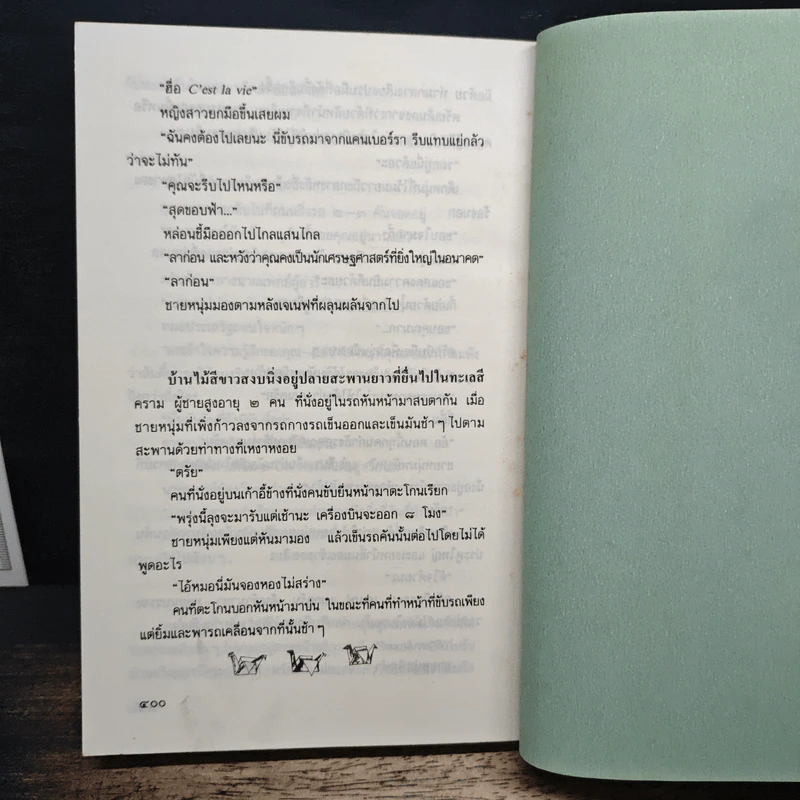 "ฮื่อ C'est la vie"
หญิงสาวยกมือขึ้นเสยผม
"ฉันคงต้องไปเลยนะ นี่ขับรถมาจากแคนเบอร์รา รีบแทบแย่กลัว
ว่าจะไม่ทัน"
"คุณจะรีบไปไหนหรือ"
"สุดขอบฟ้า..."
หล่อนชี้มือออกไปไกลแสนไกล
"ลาก่อน และหวังว่าคุณคงเป็นนักเศรษฐศาสตร์ที่ยิ่งใหญ่ในอนาคต"
"ลาก่อน"
ชายหนุ่มมองตามหลังเจเนฟที่ผลุนผลันจากไป
บ้านไม้สีขาวสงบนิ่งอยู่ปลายสะพานยาวที่ยื่นไปในทะเลสี
คราม ผู้ชายสูงอายุ ๒ คน ที่นั่งอยู่ในรถหันหน้ามาสบตากัน เมื่อ
ชายหนุ่มที่เพิ่งก้าวลงจากรถกางรถเข็นออกและเข็นมันช้าๆ ไปตาม
สะพานด้วยท่าทางที่เหงาหงอย
"ตรัย"
คนที่นั่งอยู่บนเก้าอี้ข้างที่นั่งคนขับยื่นหน้ามาตะโกนเรียก
"พรุ่งนี้ลุงจะมารับแต่เช้านะ เครื่องบินจะออก ๘ โมง"
ชายหนุ่มเพียงแต่หันมามอง แล้วเข็นรถคันนั้นต่อไปโดยไม่ได้
พูดอะไร
"ไอ้หมอนี่มันจองหองไม่สร่าง"
คนที่ตะโกนบอกหันหน้ามาบ่น ในขณะที่คนที่ทำหน้าที่ขับรถเพียง
แต่ยิ้มและพารถเคลื่อนจากที่นั้นช้าๆ
๔๐๐